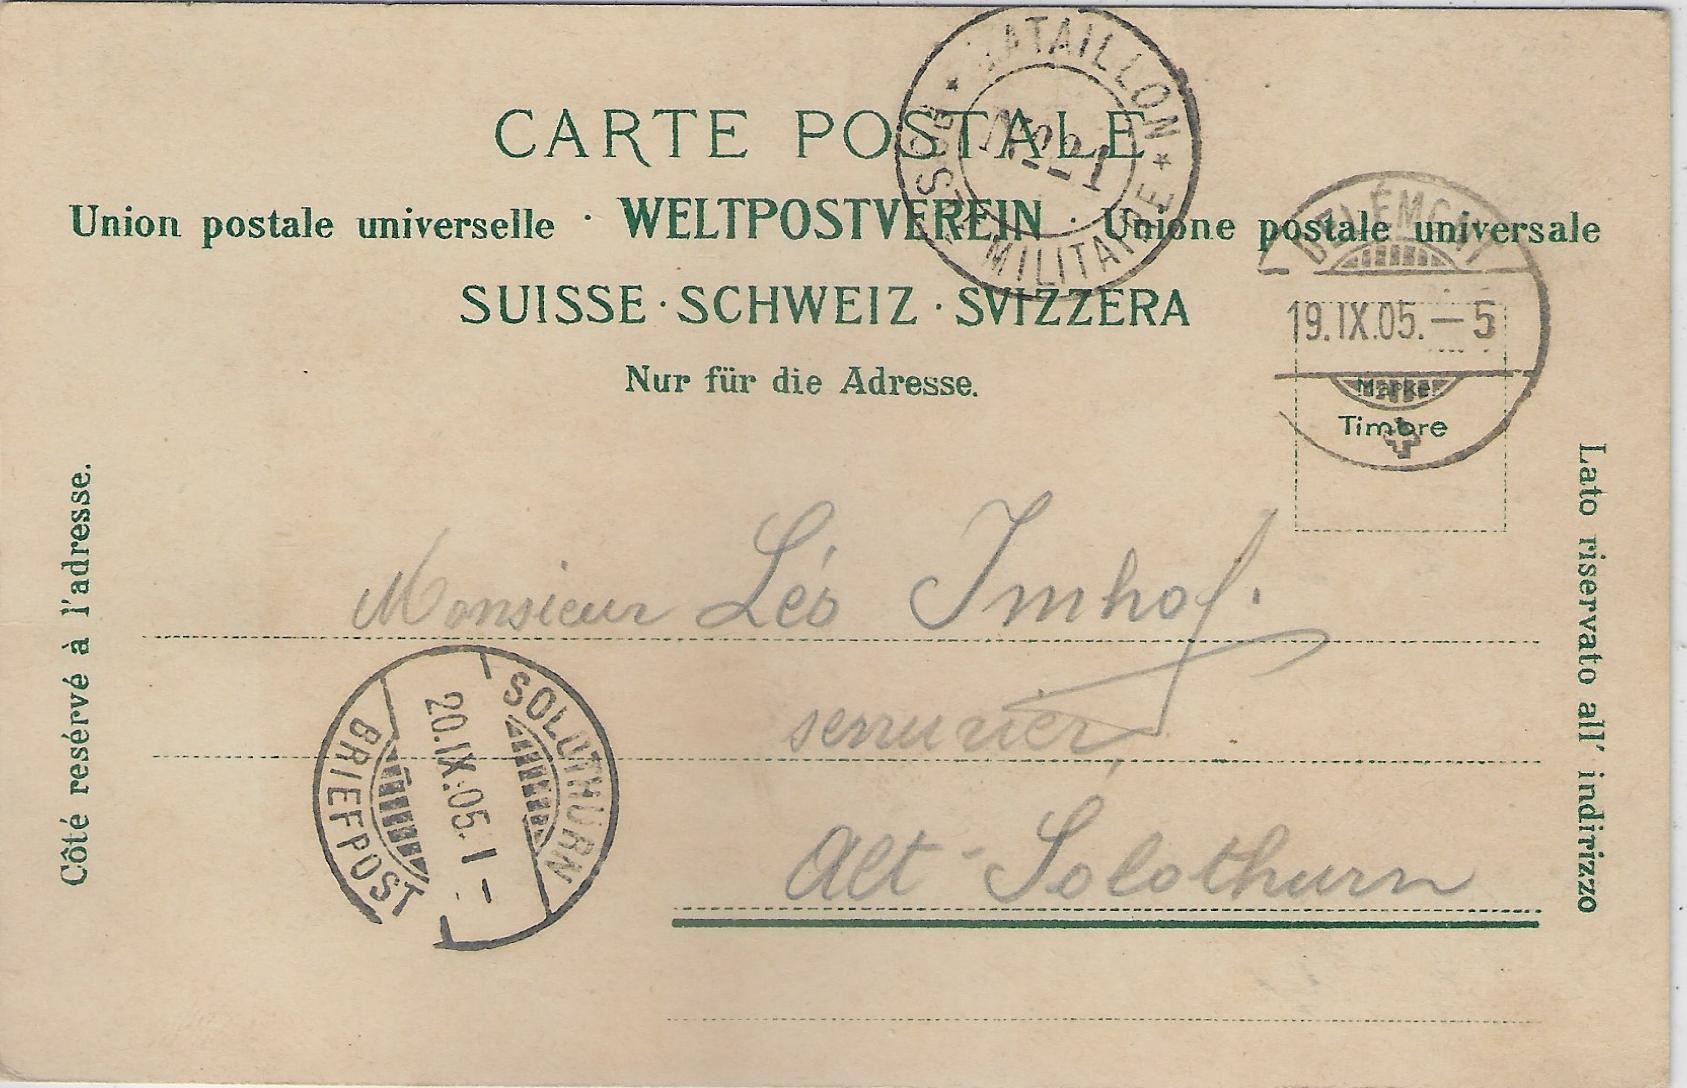 BATAILLON
No 21
POSTE MILITAIRE
CARTE POSTALE
Union postale universelle · WELTPOSTVEREIN · Unione postale universale
SUISSE · SCHWEIZ · SVIZZERA
Nur für die Adresse.
DELÉMONT
19.IX.05.–5
Marke
Timbre
Côté resérvé à l'adresse.
Lato riservato all' indirizzo
Monsieur Léo Imhof.
serrurier
Alt-Solothurn
SOLOTHURN
20.IX.05.1–
BRIEFPOST